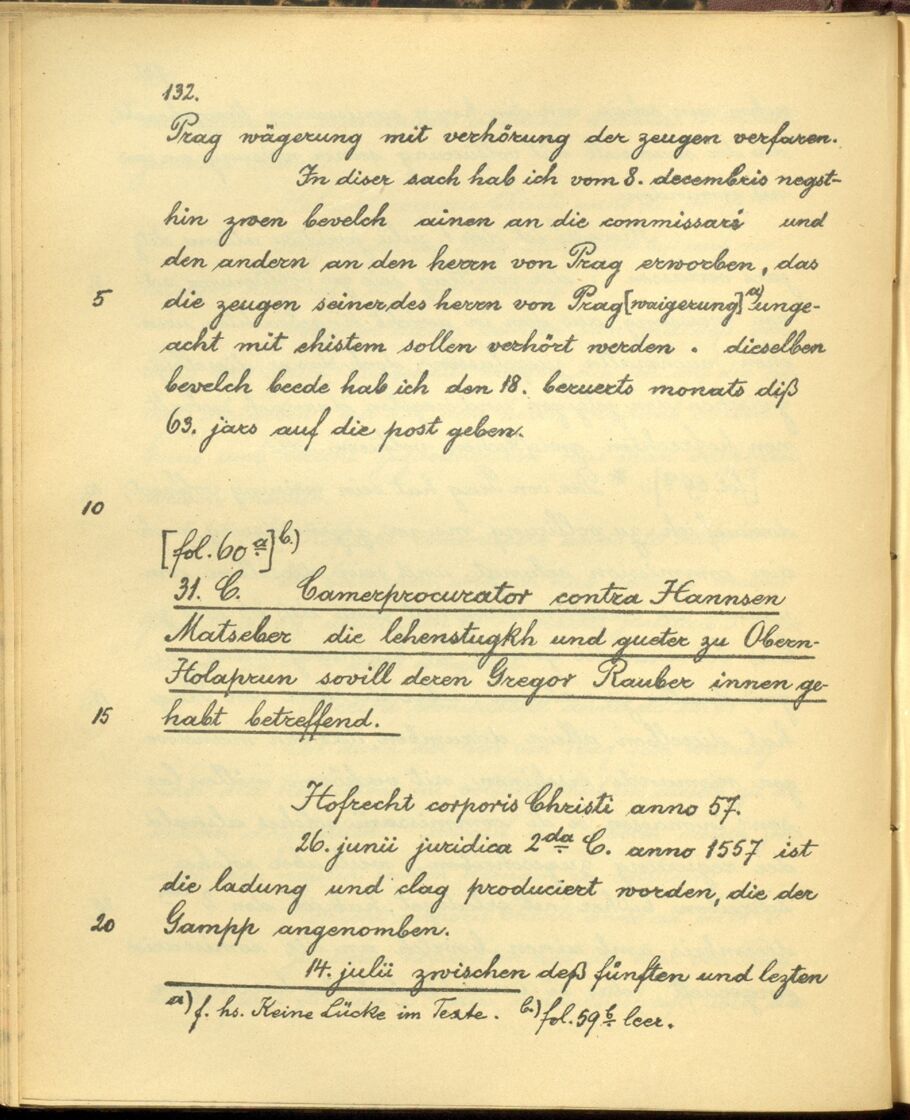 132.
Prag wägerung mit verhörung der zeugen verfaren.
In diser sach hab ich vom 8. decembris negst-
hin zwen bevelch ainen an die commissari und
den andern an den herrn von Prag erworben, das
5 die zeugen seiner des herrn von Prag [waigerung] a) unge-
acht mit ehistem sollen verhört werden. dieselben
bevelch beede hab ich den 18. beruerts monats diß
63. jars auf die post geben.
10
[fol. 60 a] b.)
31. C. Camerprocurator contra Hannsen
Matseber die lehenstugkh und gueter zu Obern-
Holaprun sovill deren Gregor Rauber innen ge-
15 habt betreffend.
Hofrecht corporis Christi anno 57.
26. junii juridica 2da C. anno 1557 ist
die ladung und clag produciert worden, die der
20 Gampp angenomben.
14. julii zwischen deß fünften und lezten
a) f. hs. Keine Lücke im Texte. b.) fol. 59 b leer.